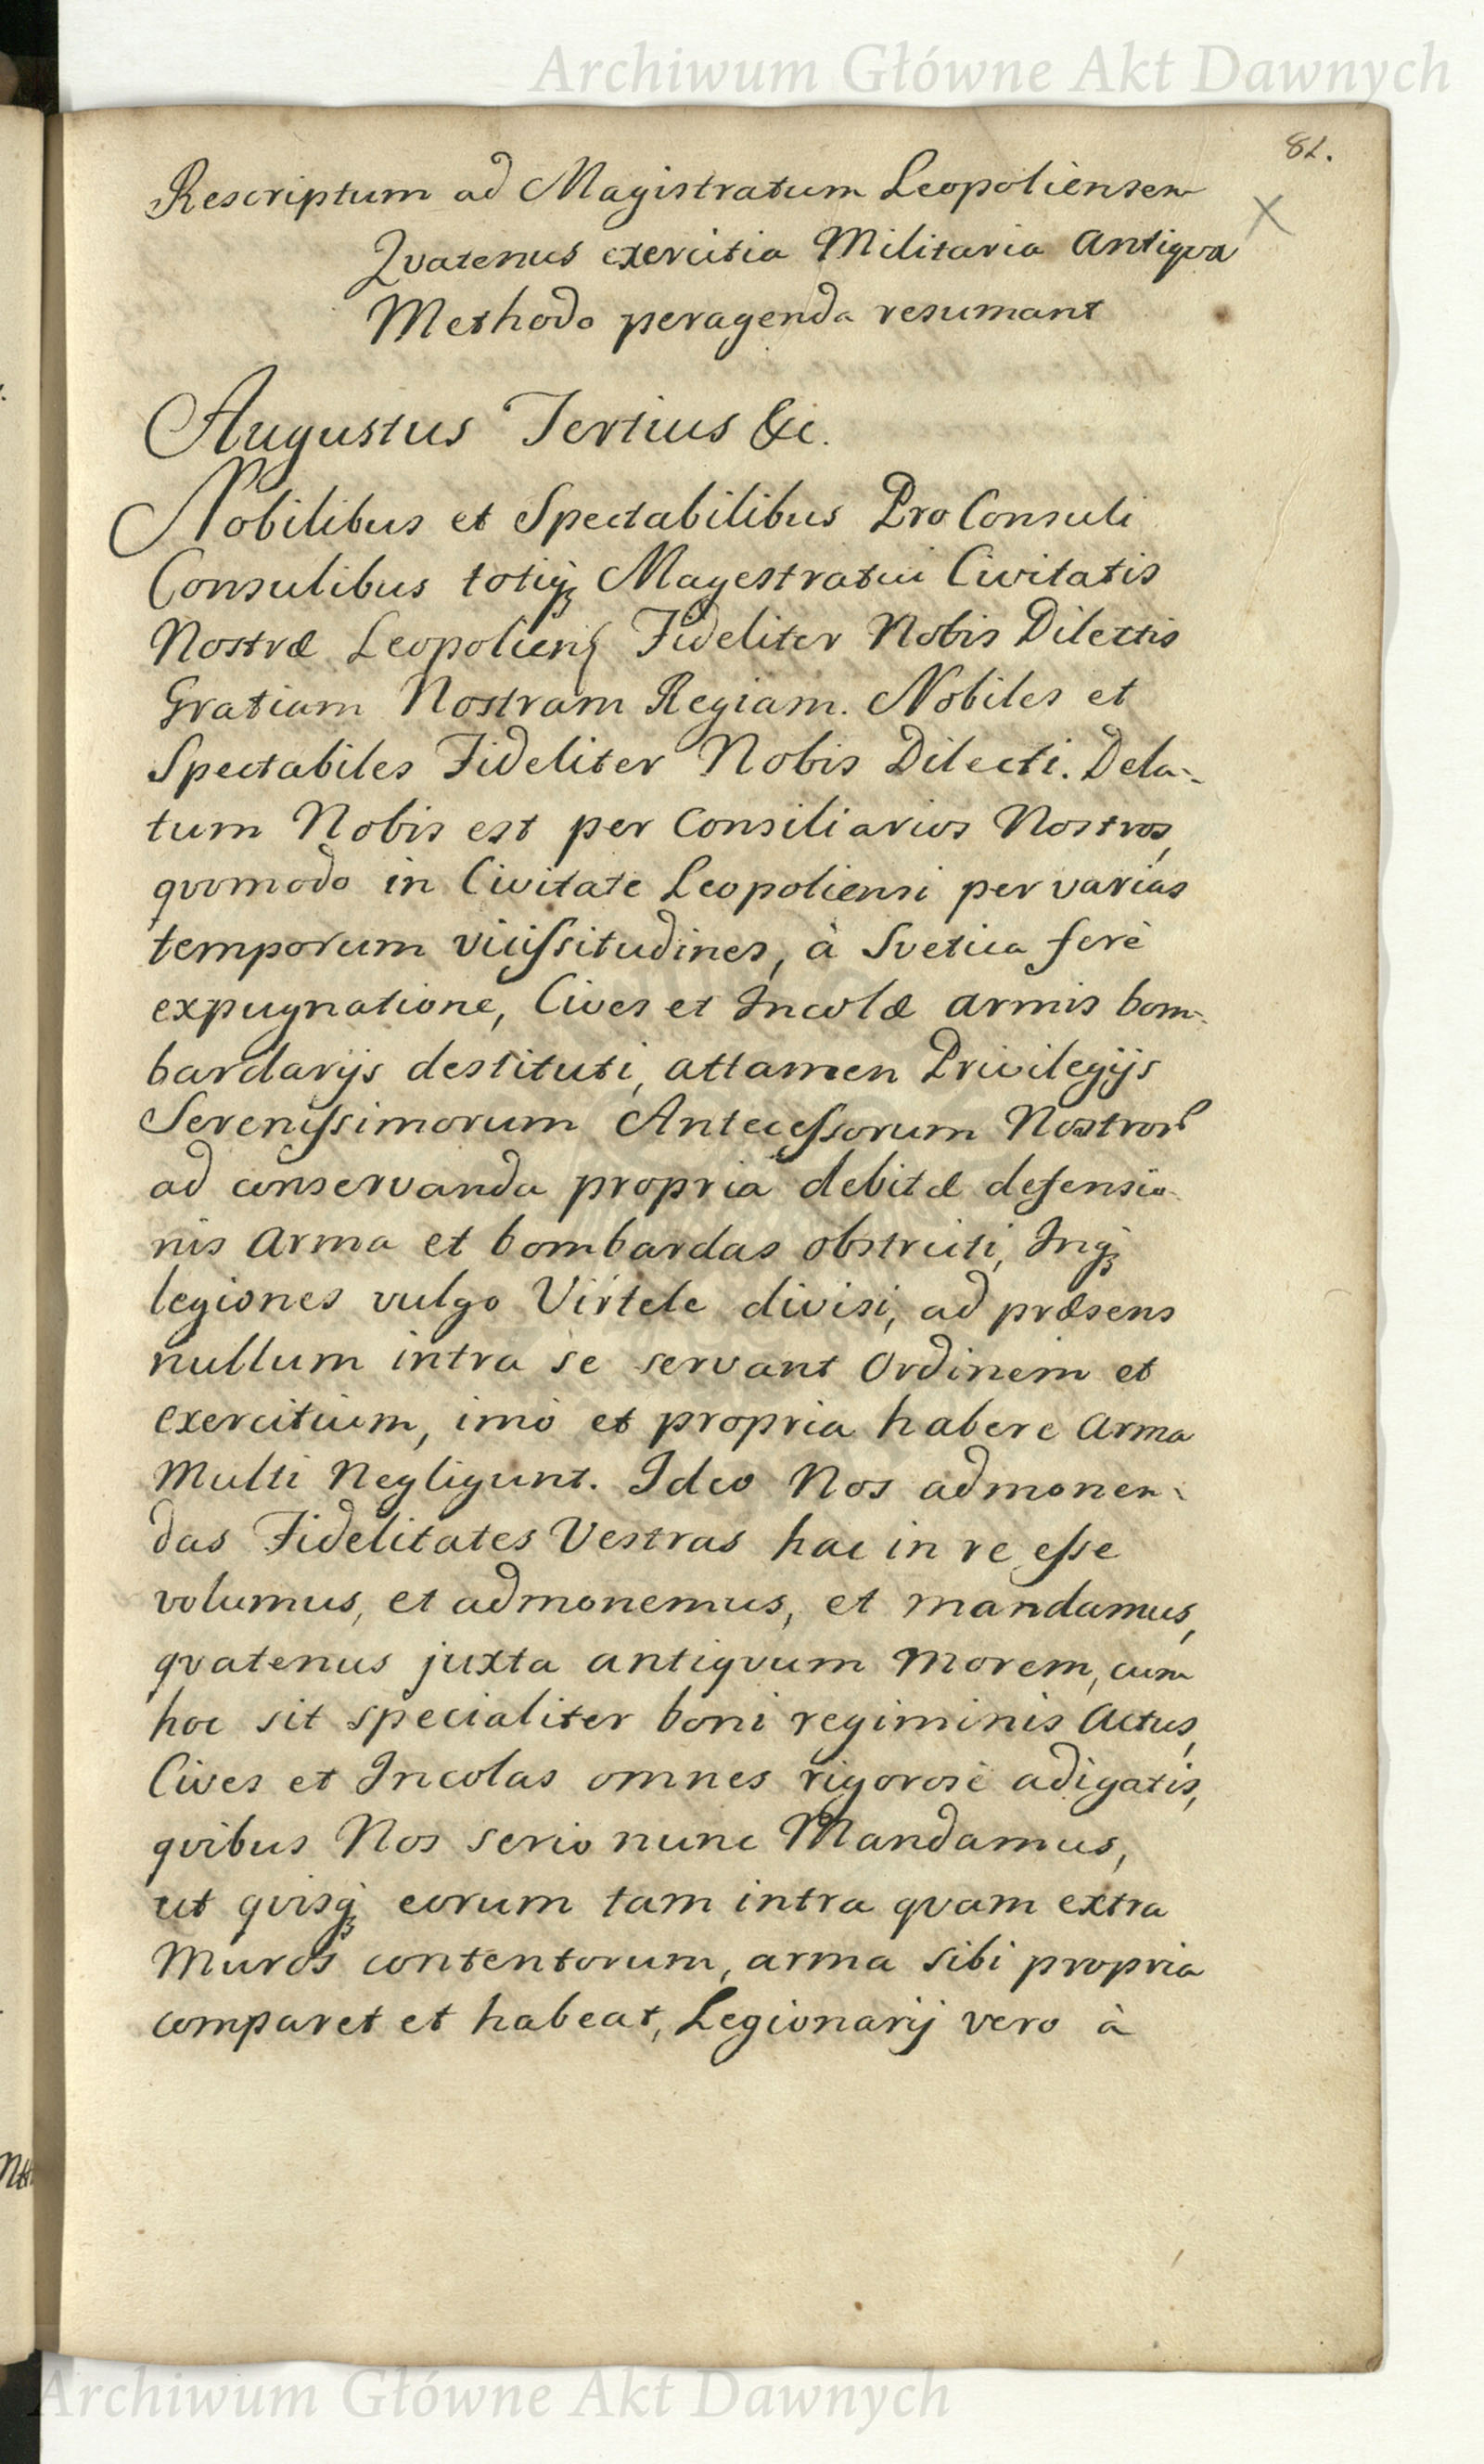 Archiwum Główne Akt Dawnych
82.
Rescriptum ad Magistratum Leopoliensem
Qvatenus exercitia Militaria Antiqva
Methodo peragenda resumant
Augustus Tertius &c.
Nobilibus et Spectabilibus ProConsuli
Consulibus totiq; Magestratui Civitatis
Nostræ Leopolien Fideliter Nobis Dilectis
Gratiam Nostram Regiam. Nobiles et
Spectabiles Fideliter Nobis Dilecti. Dela-
tum Nobis est per Consiliarios Nostros,
qvomodo in Civitate Leopoliensi per varias
temporum viciſsitudines, à Svetica ferè
expugnatione, Cives et Incolæ armis bom-
bardarijs destituti, attamen Privilegijs
Sereniſsimorum Anteceſsorum Nostror
ad conservanda propria debitæ defensio-
nis Arma et bombardas obstricti, Inq;
legiones vulgo Virtele divisi, ad præsens
nullum intra se servant Ordinem et
exercitium, imò et propria habere Arma
Multi Negligunt. Ideo Nos admonen-
das Fidelitates Vestras hac in re eſse
volumus, et admonemus, et mandamus,
qvatenus juxta antiqvum morem, cum
hoc sit specialiter boni regiminis Actus,
Cives et Incolas omnes rigorosè adigatis,
qvibus Nos serio nunc Mandamus,
ut qvisq; eorum tam intra qvam extra
Muros contentorum, arma sibi propria
comparet et habeat, Legionarij vero à
Archiwum Główne Akt Dawnych